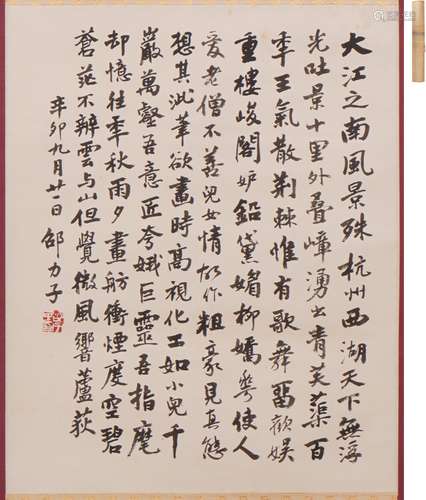 大江之南風景殊杭州西湖天下無浮
光吐景十里外疊嶂湧出青芙蕖百
年王氣散荆棘惟有歌舞留歡娛
重樓峻閣妒鉛黛媚柳嬌花使人
愛老僧不善兒女情故作粗豪見真態
想其泚筆欲畫時高視化工如小兒千
巖萬壑吾意匠夸娥巨靈吾指麾
却憶往年秋雨夕畫舫衝煙度空碧
蒼茫不辨雲与山但覺微風響蘆荻
辛卯九月廿一日 邵力子